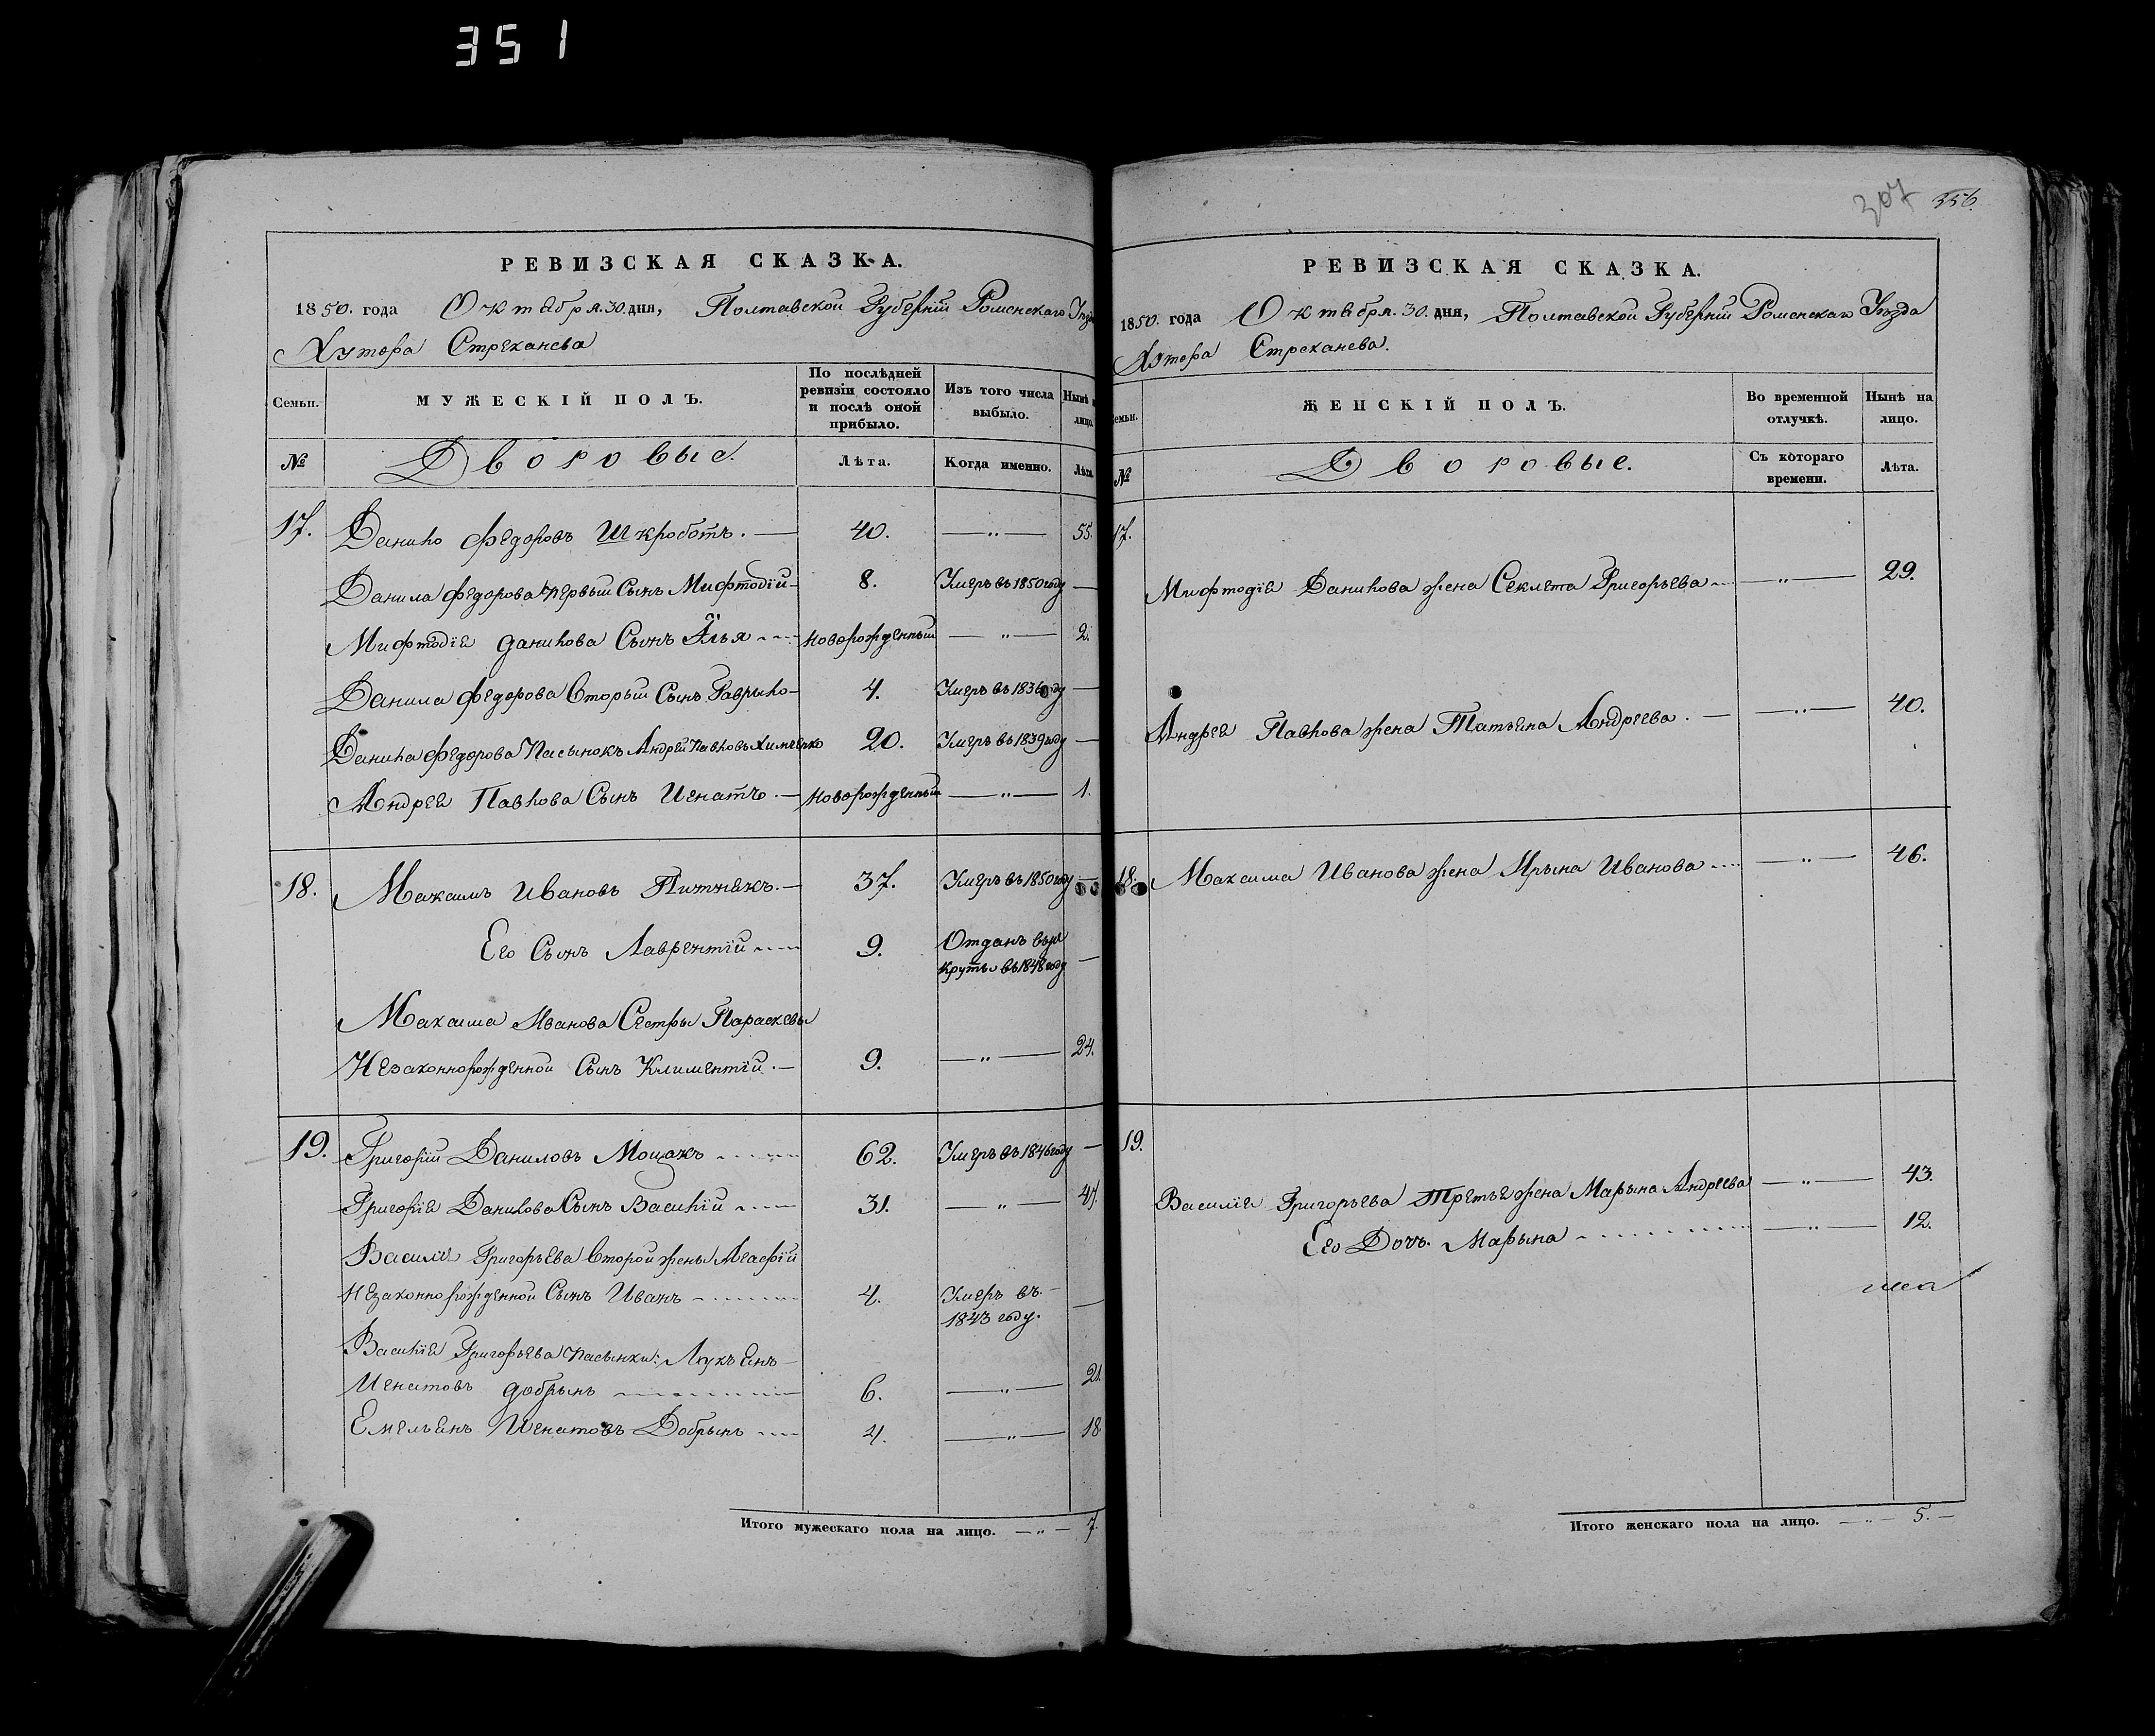 351
307 356.
РЕВИЗСКАЯ СКАЗКА.
1850. года Октября. 30. дня, Полтавской Губерніи Роменскаго Уѣзда
Хутора Стреканева
Семьи.
МУЖЕСКІЙ ПОЛЪ.
По послѣдней ревизіи состояло и послѣ оной прибыло.
Изъ того числа выбыло.
Нынѣ на лицо.
№ Дворовые. Лѣта. Когда именно. Лѣта
17. Данило Федоровъ Шкроботъ. — 40. — „ — 55.
Данила Федорова первый Сынъ Мифтодій — 8. Умеръ въ 1850 году —
Мифтодія Данилова Сынъ Илья новорожденный — „ — 2.
Данила Федорова Вторый Сынъ Гаврыло — 4. Умеръ въ 1836 году —
Данила Федорова Пасынокъ Андрей Павловъ Химченко 20. Умеръ въ 1839 году —
Андрея Павлова Сынъ Игнатъ. — новорожденный — „ — 1.
18. Максимъ Ивановъ Питнякъ. — 37. Умеръ въ 1850 году —
Его Сынъ Лаврентій 9. Отданъ въ ре
круты въ 1848 году —
Максима Иванова Сестры Параскевы
Незаконнорожденной Сынъ Климентій. — 9. — „ — 24.
19. Григорій Даниловъ Мощакъ 62. Умеръ въ 1846 году —
Григорія Данилова Сынъ Василій 31. — „ — 47.
Василія Григорьева Второй жены Агафіи
Незаконнорожденной Сынъ Иванъ 4. Умеръ въ
1843 году. —
Василія Григорьева пасынки: Лукьянъ
Игнатовъ Добрынь 6. — „ — 21.
Емельянъ Игнатовъ Добрынь 4. — „ — 18
Итого мужескаго пола на лицо. — „ — 7.
РЕВИЗСКАЯ СКАЗКА.
1850. года Октября. 30. дня, Полтавской Губерніи Роменскаго Уѣзда
Хутора Стреканева.
Семьи.
ЖЕНСКІЙ ПОЛЪ.
Во временной отлучкѣ.
Нынѣ на лицо.
№ Дворовые. Съ котораго времени. Лѣта.
17.
Мифтодія Данилова жена Секлета Григорьева — „ — 29.
Андрея Павлова жена Татьяна Андреева. — — „ — 40.
18. Максима Иванова жена Ирына Иванова — „ — 46.
19.
Василія Григорьева Третья жена Марына Андреева — „ — 43.
Его Дочь. Марына — „ — 12.
Итого женскаго пола на лицо. — „ — 5. —